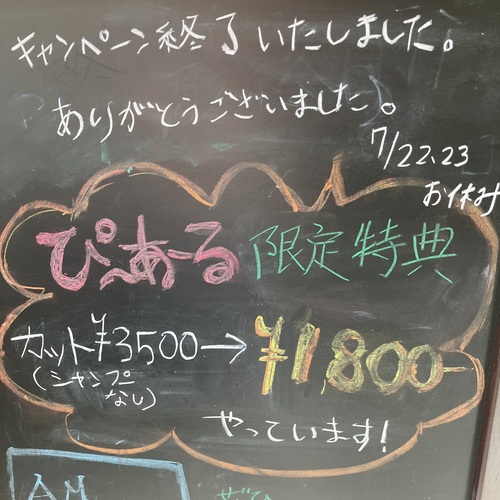 キャンペーン終了いたしました。
ありがとうございました。
7/22.23
お休み
ぴ〜あ〜る 限定特典
カット¥3500→¥1,800
(シャンプー
なし)
やっています!
AM